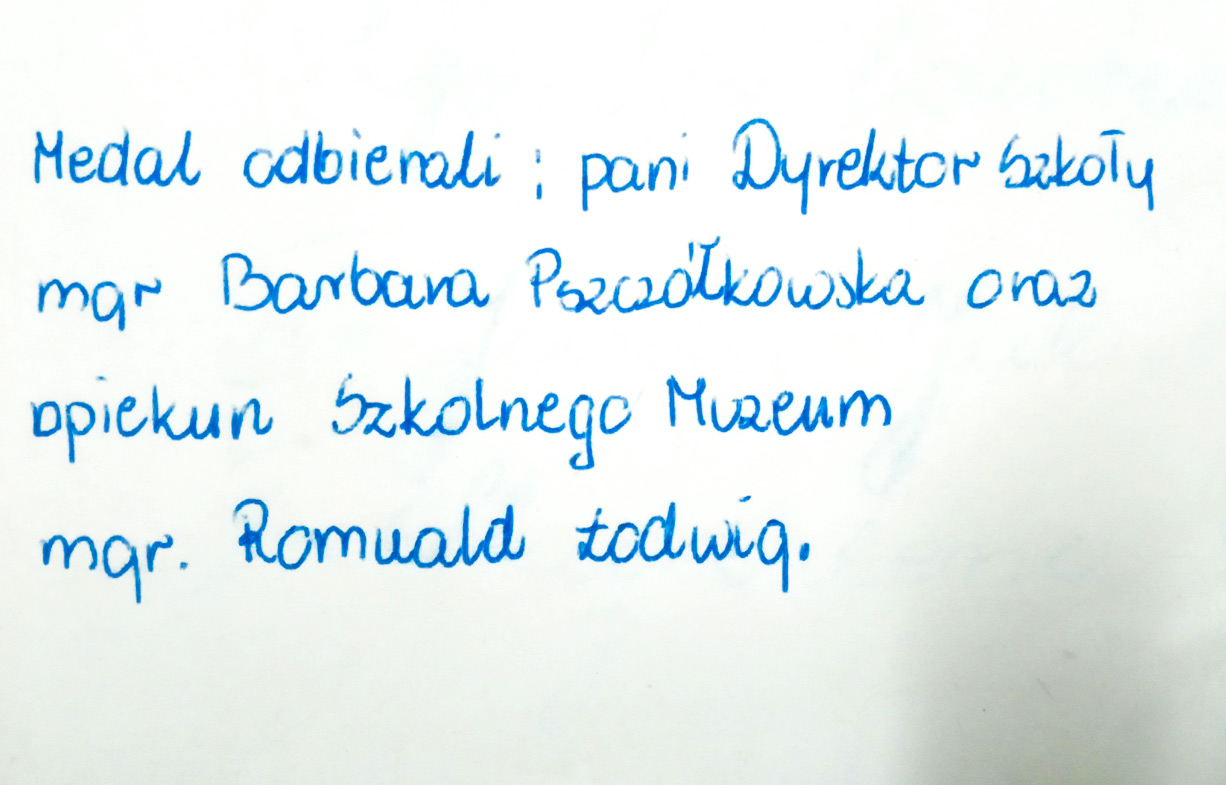 Medal odbierali: pani Dyrektor Szkoły
mgr Barbara Pszczółkowska oraz
opiekun Szkolnego Muzeum
mgr. Romuald Łodwig.